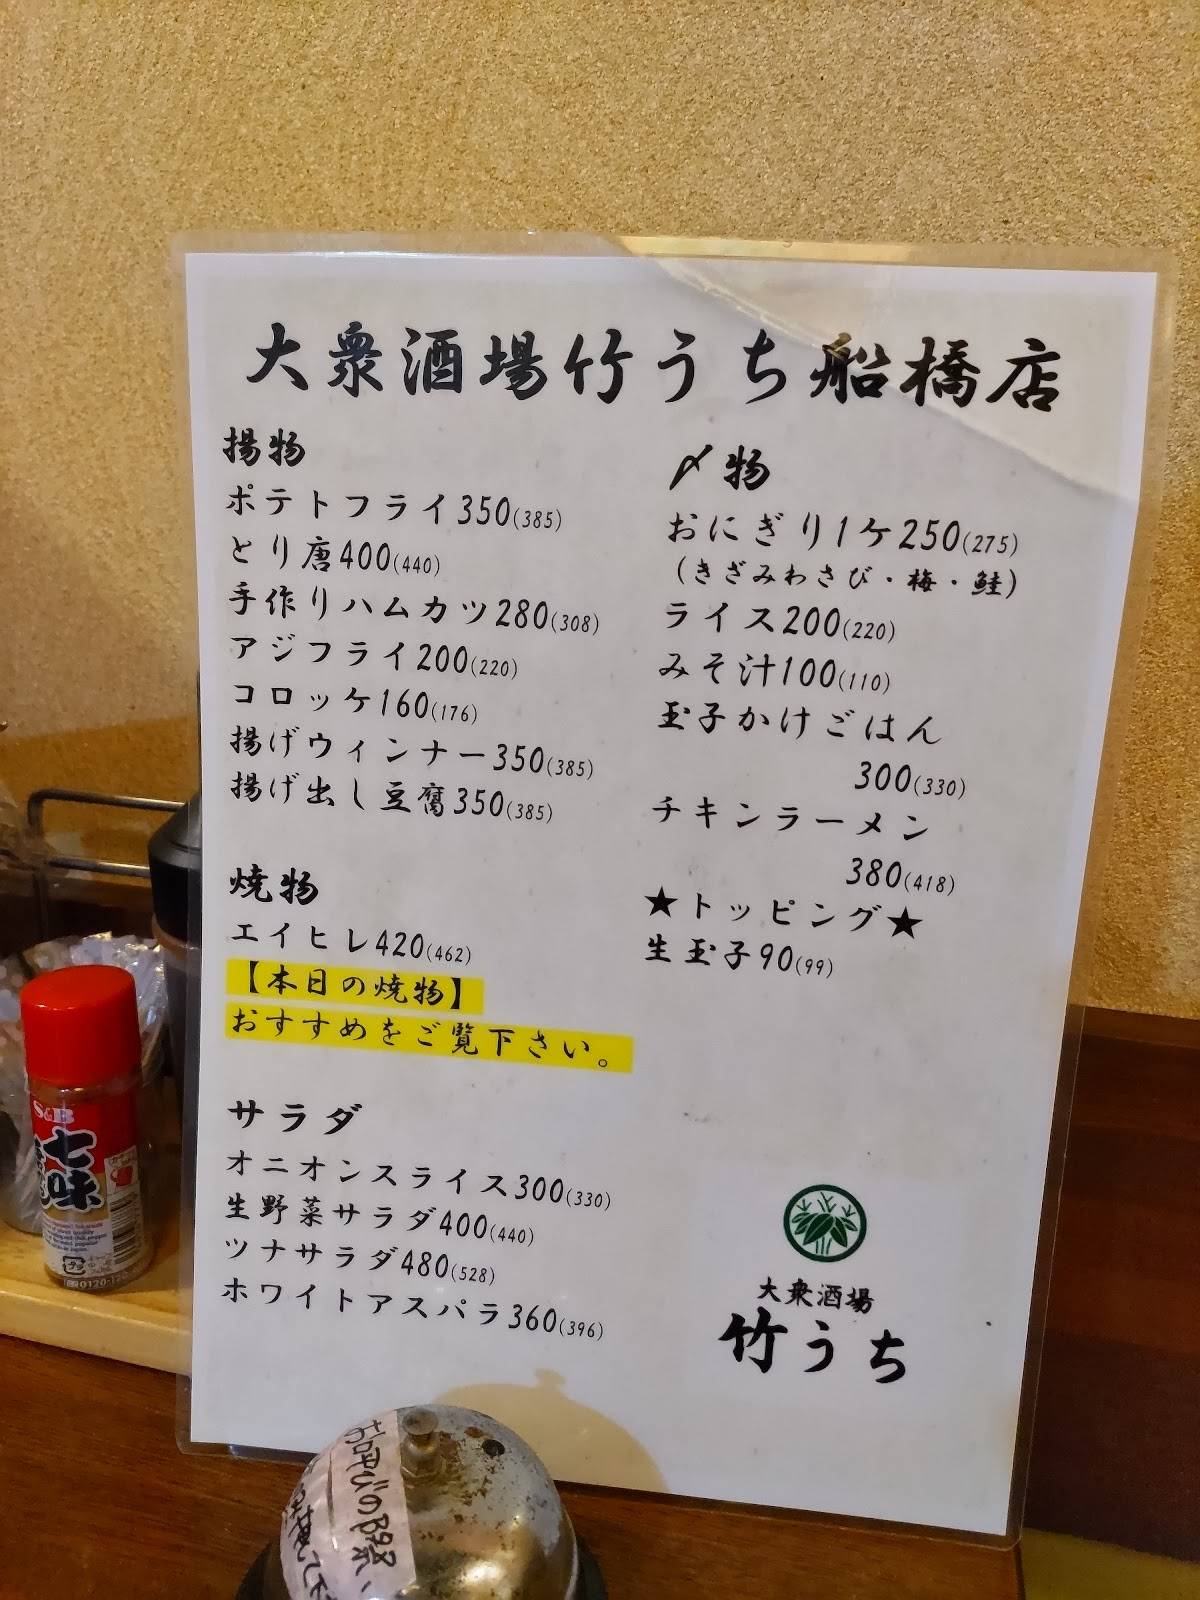 大衆酒場竹うち船橋店
揚物
ポテトフライ350(385)
とり唐400(440)
手作りハムカツ280(308)
アジフライ200(220)
コロッケ160(176)
揚げウィンナー350(385)
揚げ出し豆腐350(385)
焼物
エイヒレ420(462)
【本日の焼物】
おすすめをご覧下さい。
サラダ
オニオンスライス300(330)
生野菜サラダ400(440)
ツナサラダ480(528)
ホワイトアスパラ360(396)
〆物
おにぎり1ケ250(275)
(きざみわさび・梅・鮭)
ライス200(220)
みそ汁100(110)
玉子かけごはん
300(330)
チキンラーメン
380(418)
★トッピング★
生玉子90(99)
大衆酒場
竹うち
S&B
七味
お呼びの際